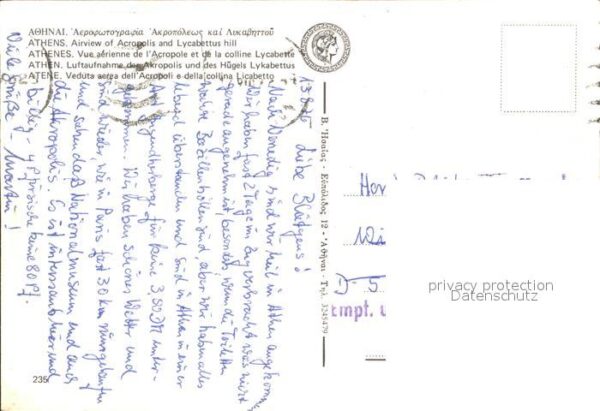 ΑΘΗΝΑΙ. Ἀεροφωτογραφία Ἀκροπόλεως καί Λυκαβηττοῦ
ATHENS. Airview of Acropolis and Lycabettus hill
ATHENES. Vue aérienne de l'Acropole et de la colline Lycabette
ATHEN. Luftaufnahme des Akropolis und des Hügels Lykabettus
ATENE. Veduta aerea dell'Acropoli e della collina Licabetto
Liebe
Nach Venedig sind wir heil in Athen
Wir haben fast 2 Tage im Zug verbracht was nicht
gerade angenehm ist, besonders wenn die Toiletten
sind, aber wir haben alles
überstanden und sind in Athen in einer
Jugendherberge für keine 3,50 DM unter-
Wir haben schönes Wetter und
sind wieder, wie in Paris fast 30 km
und sahen das Nationalmuseum und
die Akropolis. Es ist interessant hier und
billig - 4 Pfirsiche keine 80 Pf.
Viele Grüße - Martin!
235
Β. Ἡσαΐας - Εὐπόλιδος 12 - Ἀθῆναι - Τηλ. 3245479
D-5
Empf.
privacy protection
Datenschutz